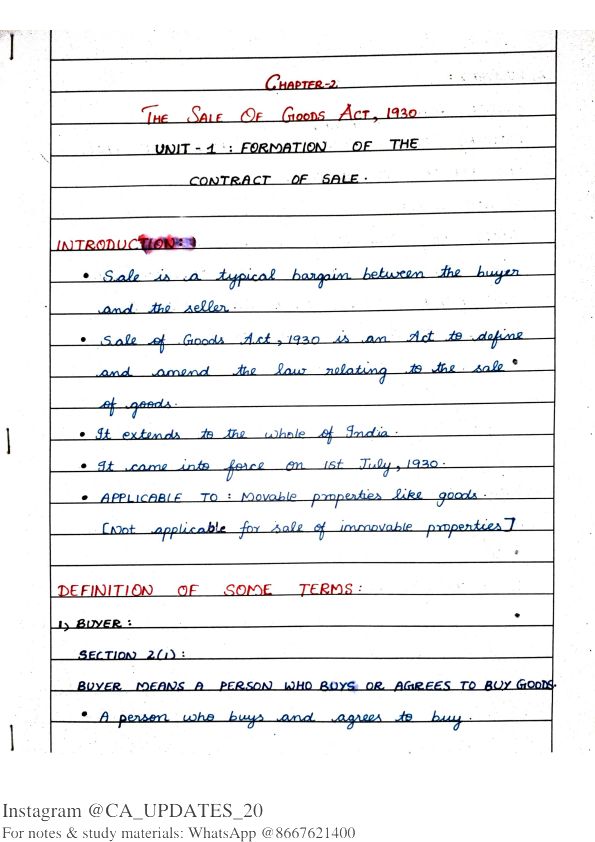 CHAPTER-2
THE SALE OF GOODS ACT, 1930
UNIT - 1 : FORMATION OF THE
CONTRACT OF SALE.
INTRODUCTION:
• Sale is a typical bargain between the buyer
and the seller.
• Sale of Goods Act, 1930 is an Act to define
and amend the law relating to the sale
of goods.
• It extends to the whole of India.
• It came into force on 1st July, 1930.
• APPLICABLE TO : Movable properties like goods.
[Not applicable for sale of immovable properties]
DEFINITION OF SOME TERMS:
1) BUYER :
SECTION 2(1) :
BUYER MEANS A PERSON WHO BUYS OR AGREES TO BUY GOODS.
• A person who buys and agrees to buy.
Instagram @CA_UPDATES_20
For notes & study materials: WhatsApp @8667621400